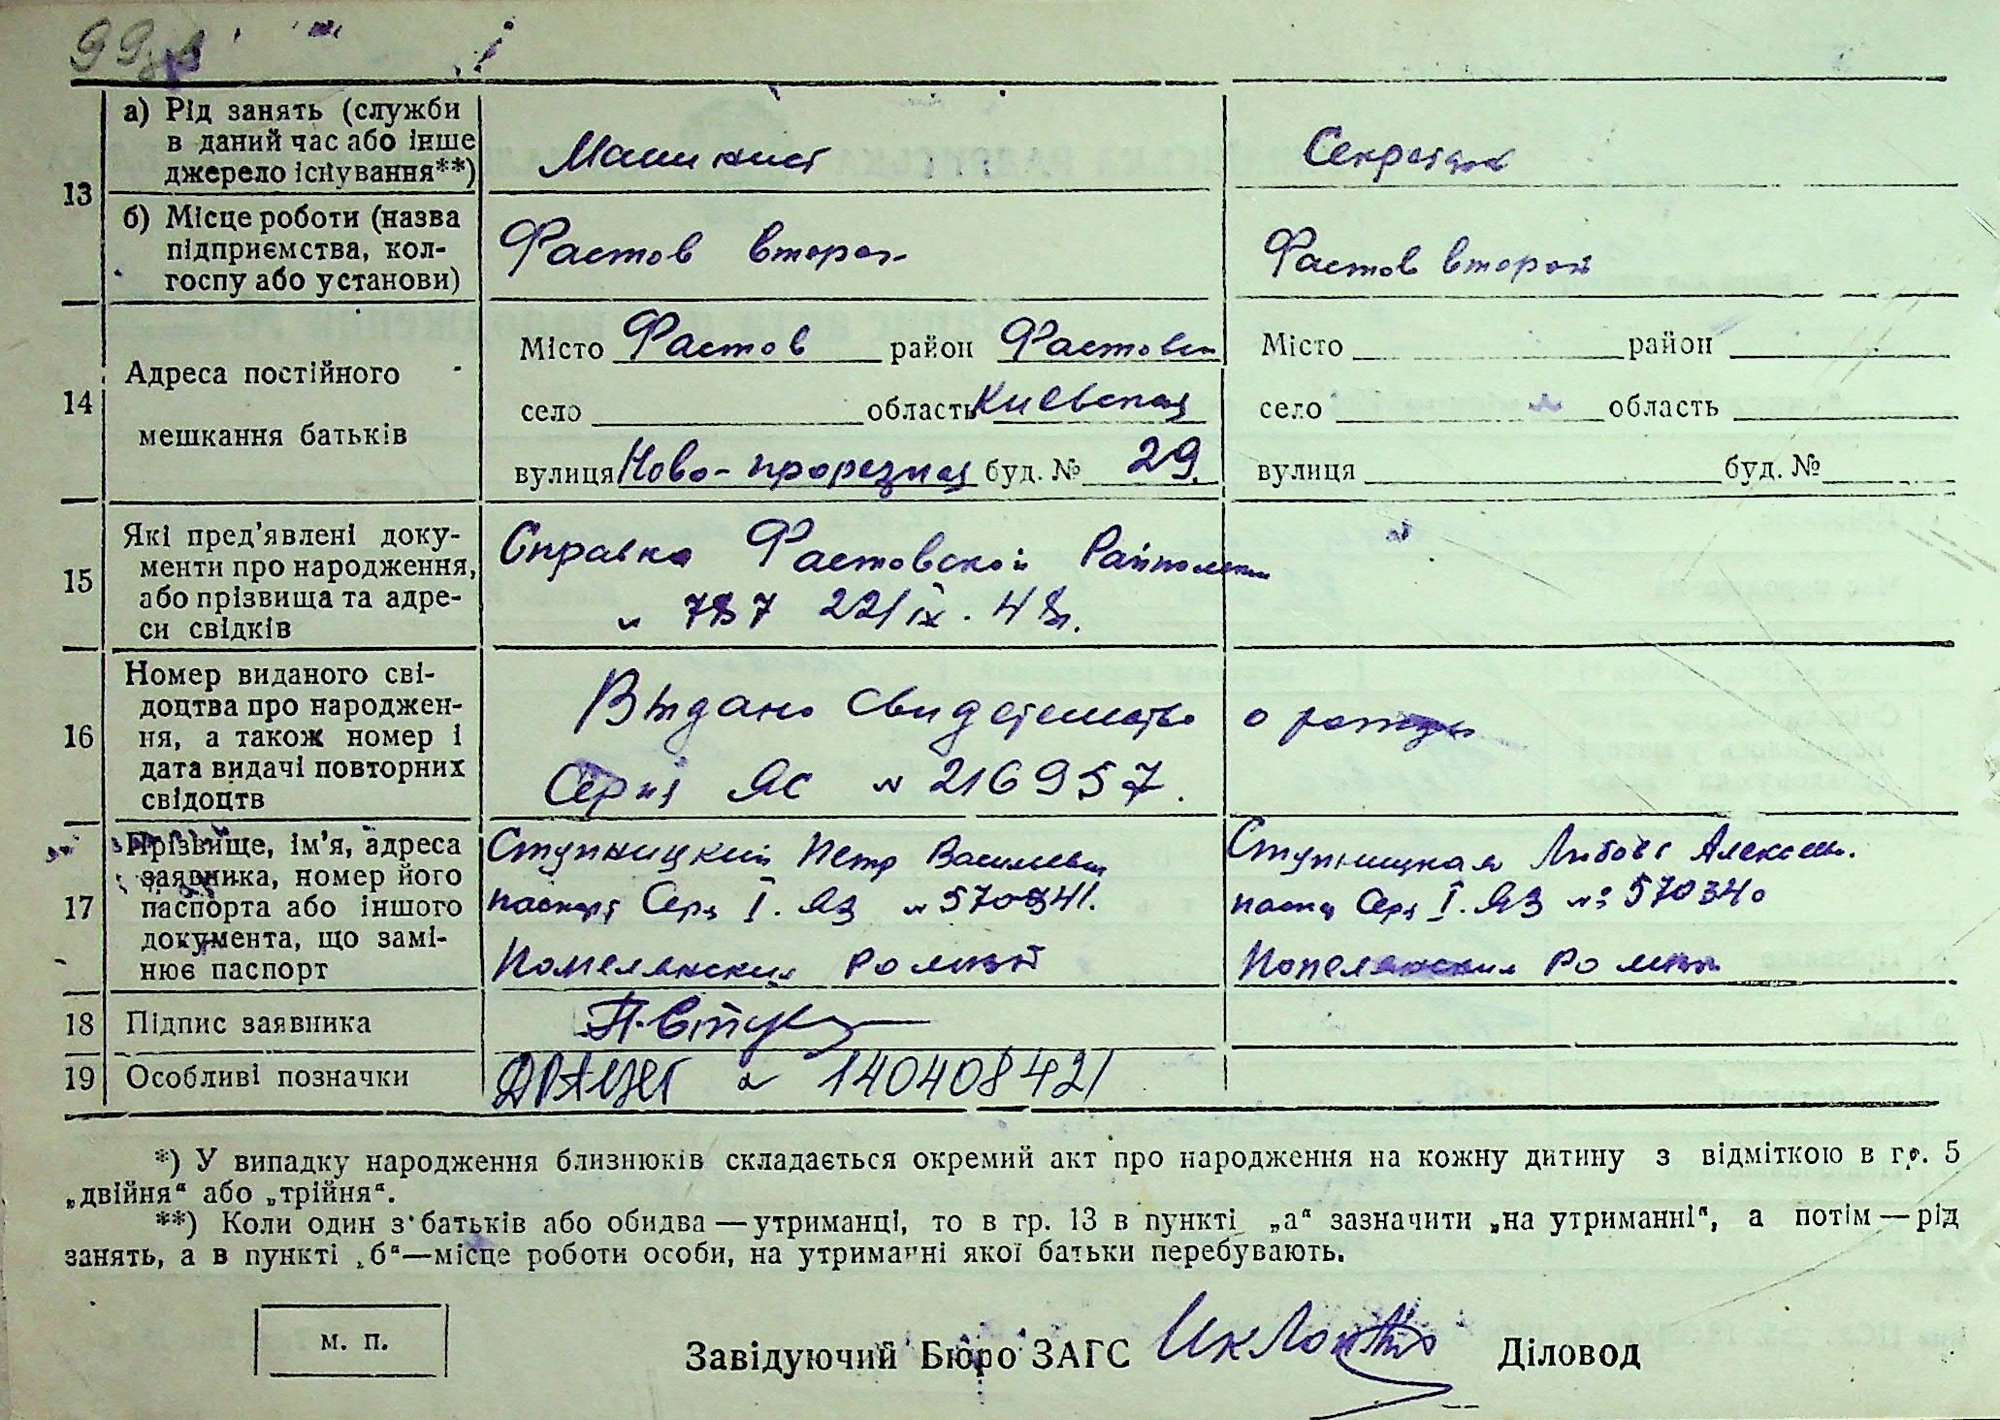 99
13 а) Рід занять (служби
в даний час або інше
джерело існування**)
Машинист
Секретарь
б) Місце роботи (назва
підприємства, кол-
госпу або установи)
Фастов второй
Фастов второй
14 Адреса постійного
мешкання батьків
Місто Фастов район Фастовск
село область Киевская
вулиця Ново-прорезная буд. № 29.
Місто район
село область
вулиця буд. №
15 Які пред'явлені доку-
менти про народження,
або прізвища та адре-
си свідків
Справка Фастовской
787 22/IX. 48г.
16 Номер виданого сві-
доцтва про народжен-
ня, а також номер і
дата видачі повторних
свідоцтв
Выдано свидетельство о
Серия ЯС № 216957.
17 Прізвище, ім'я, адреса
заявника, номер його
паспорта або іншого
документа, що замі-
нює паспорт
Ступницкий Петр Васильевич
паспорт Серя I. ЯЗ № 570341.
Ступницкая Любовь Алексее.
Серя I. ЯЗ №: 570340
18 Підпис заявника
П. Ступ
19 Особливі позначки
№ 140408421
*) У випадку народження близнюків складається окремий акт про народження на кожну дитину з відміткою в гр. 5
„двійня“ або „трійня“.
**) Коли один з батьків або обидва — утриманці, то в гр. 13 в пункті „а“ зазначити „на утриманні“, а потім — рід
занять, а в пункті „б“—місце роботи особи, на утриманні якої батьки перебувають.
м. п.
Завідуючий Бюро ЗАГС Діловод